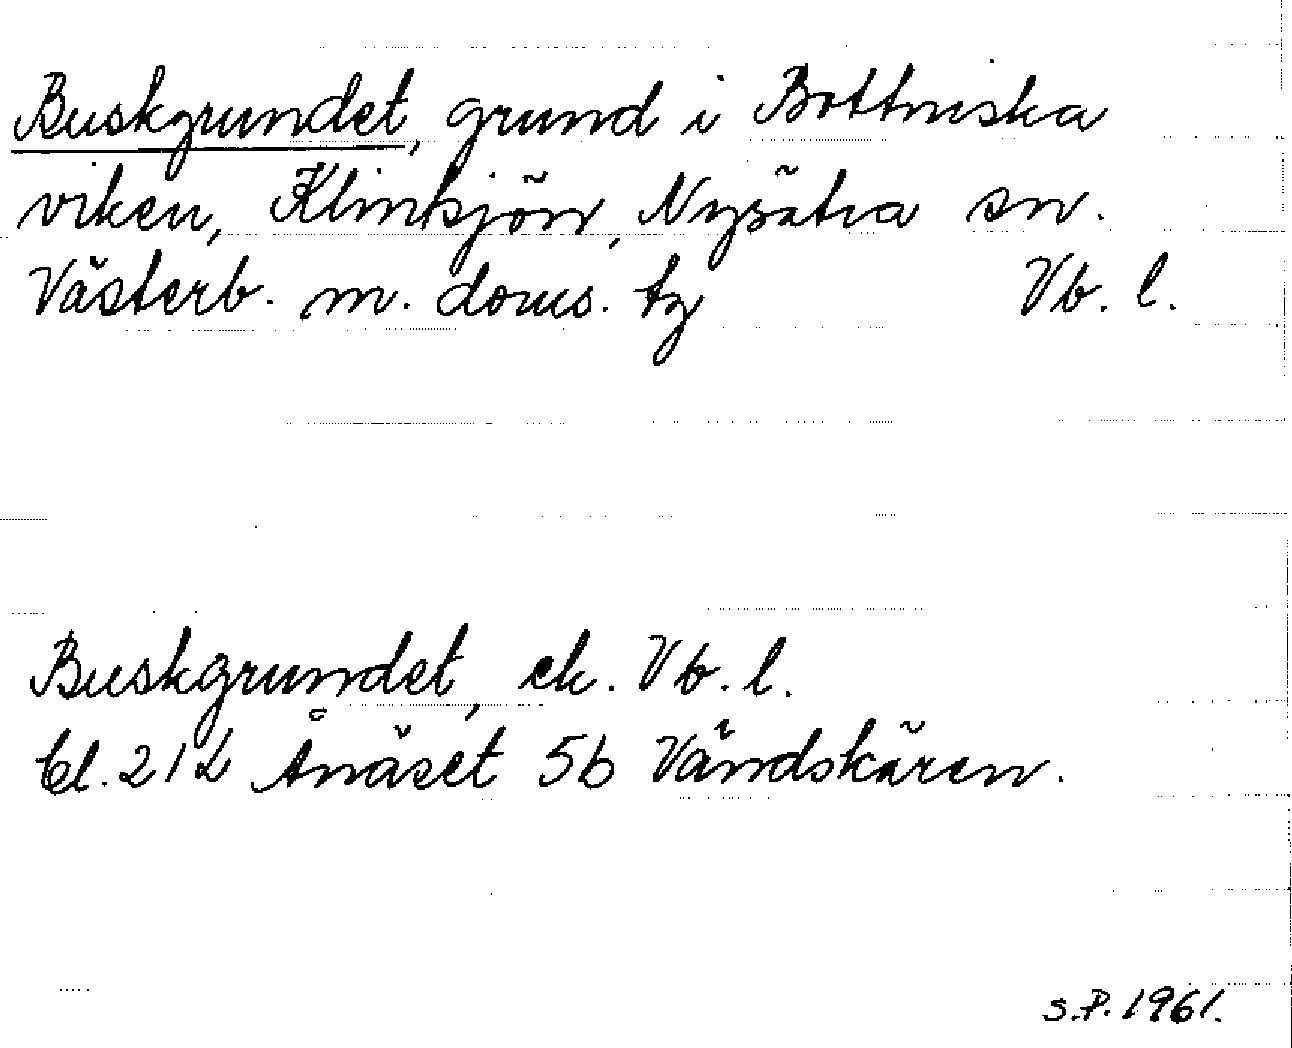 Buskgrundet, grund i Bottniska
viken, Klinksjön, Nysätra sn.
Västerb. m. doms. tg Vb. l.
Buskgrundet, ek. Vb. l.
bl. 21L Ånäset 5b Våndskären.
S.P. 1961.